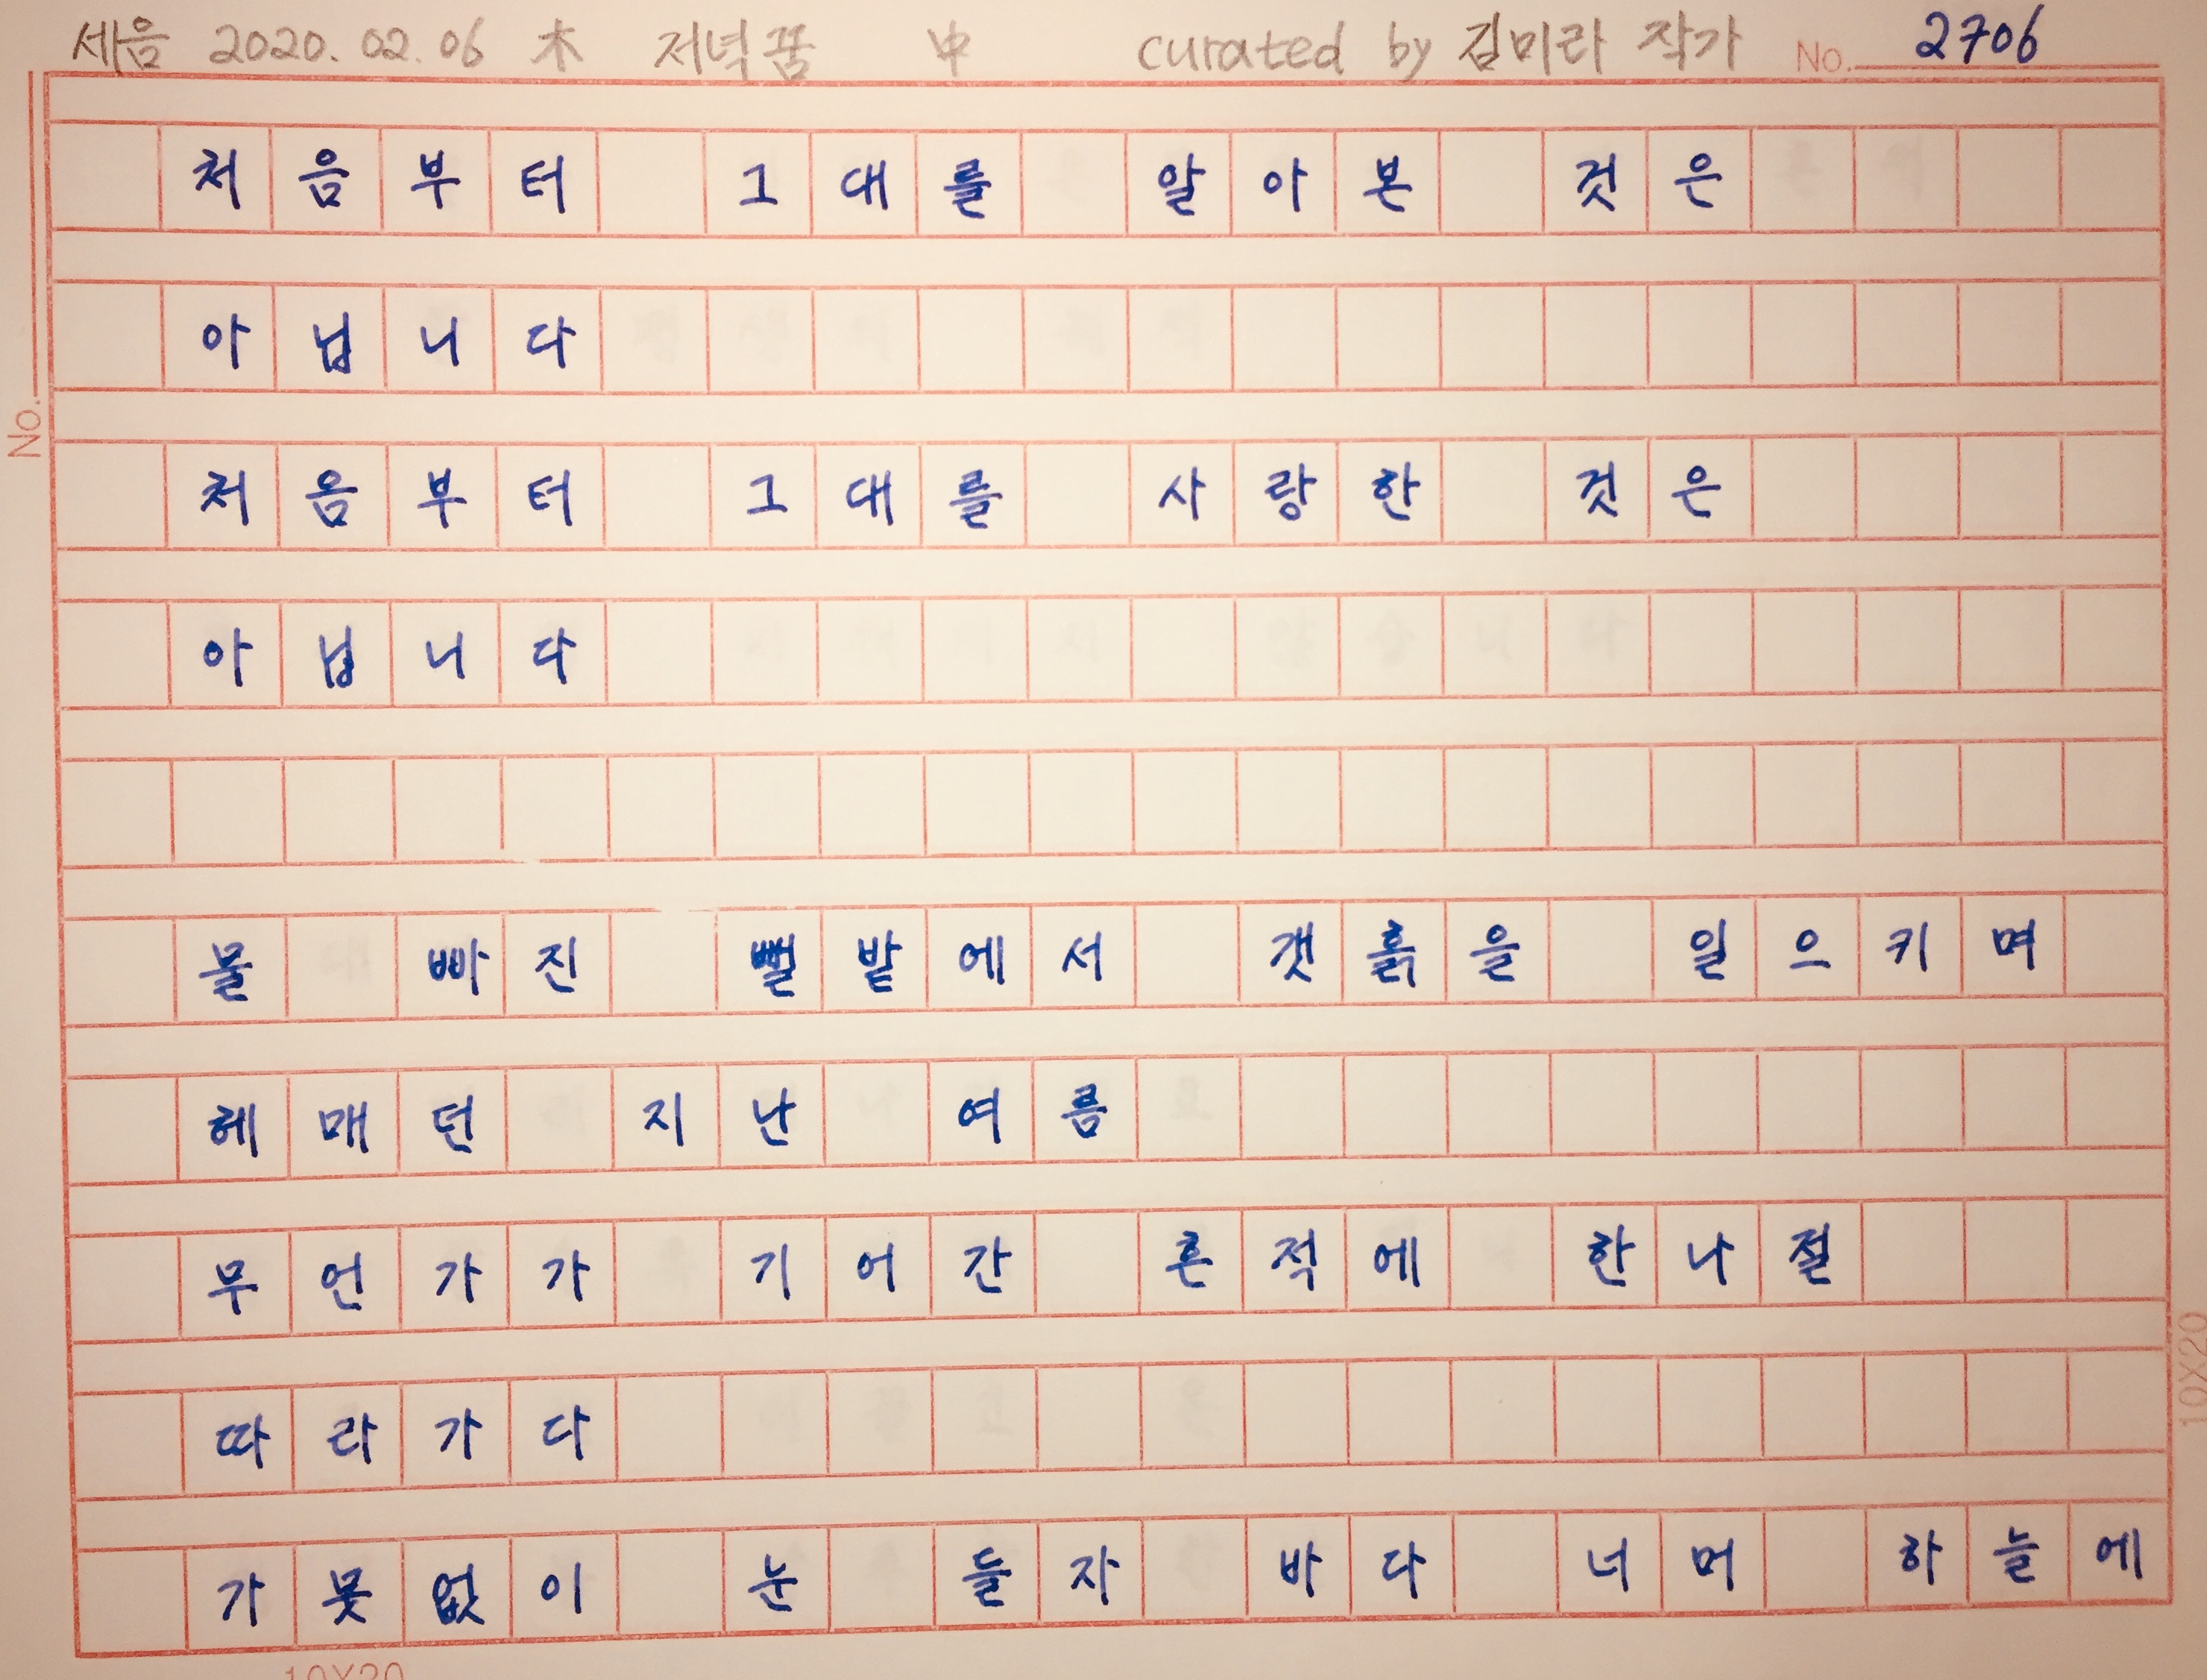 세음 2020.02.06 木 저녁꿈 中 curated by 김미라 작가 No. 2706
처음부터 그대를 알아본 것은
아닙니다
No.
처음부터 그대를 사랑한 것은
아닙니다
물 빠진 뻘밭에서 갯흙을 일으키며
헤매던 지난 여름
무언가가 기어간 흔적에 한나절
10X20
따라가다
가뭇없이 눈 들자 바다 너머 하늘에
10X20